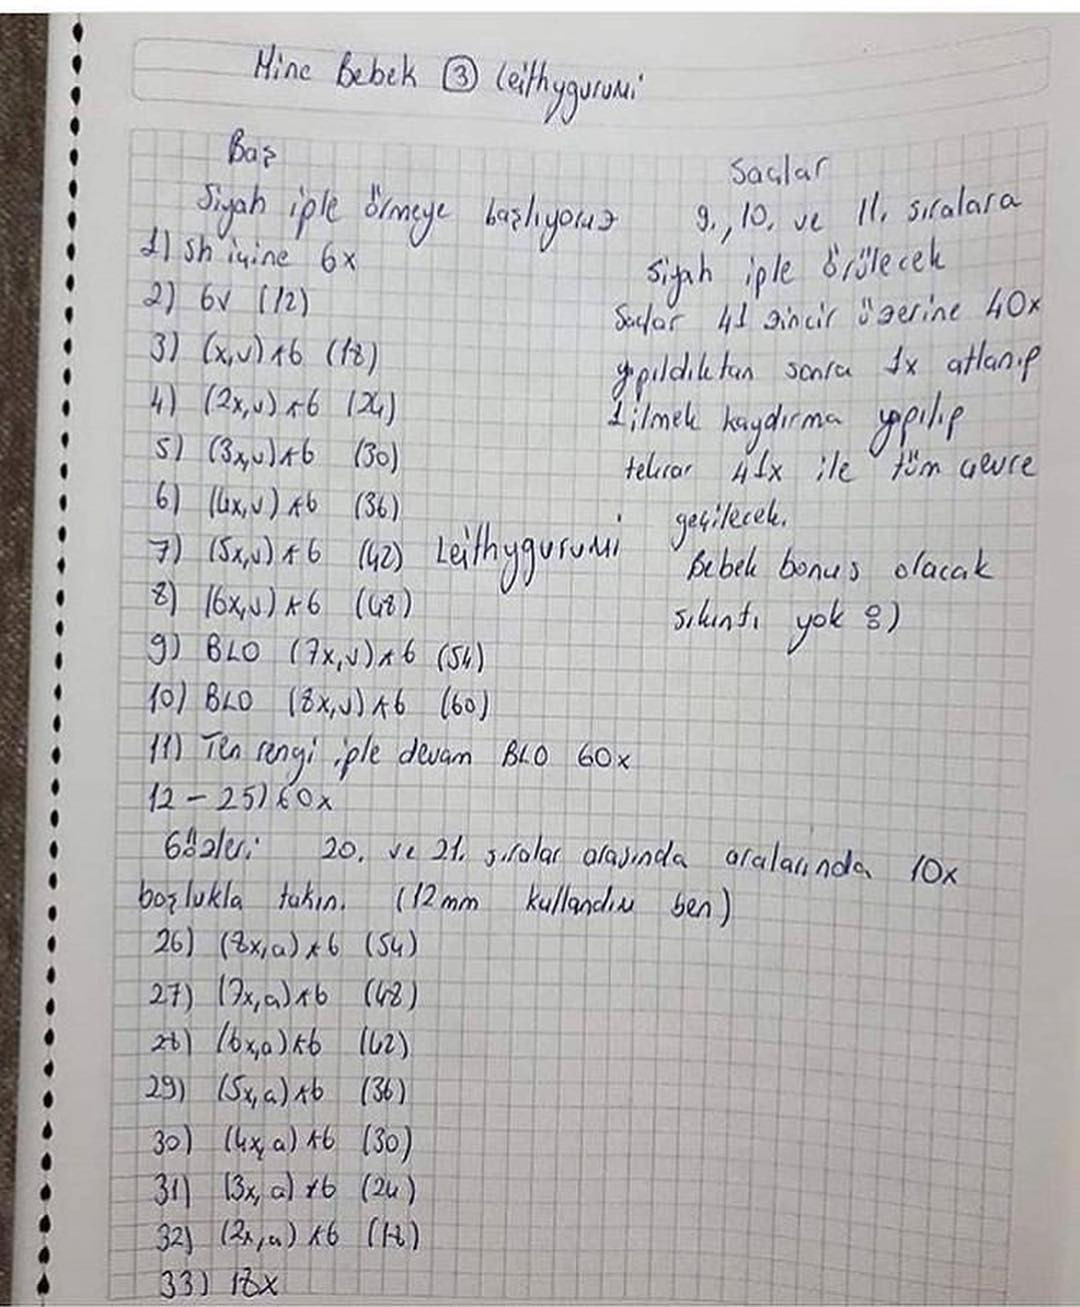 Mine Bebek ③ Leithygurumi
Baş
Siyah iple örmeye başlıyoruz
1) sh içine 6x
2) 6v (12)
3) (x,v)*6 (18)
4) (2x,v)*6 (24)
5) (3x,v)*6 (30)
6) (4x,v)*6 (36)
7) (5x,v)*6 (42) Leithygurumi
8) (6x,v)*6 (48)
9) BLO (7x,v)*6 (54)
10) BLO (8x,v)*6 (60)
11) Ten rengi iple devam BLO 60x
12-25) 60x
Gözler: 20. ve 21. sıralar arasında aralarında 10x
boşlukla takın. (12mm kullandım ben)
26) (8x,a)*6 (54)
27) (7x,a)*6 (48)
28) (6x,a)*6 (42)
29) (5x,a)*6 (36)
30) (4x,a)*6 (30)
31) (3x,a)*6 (24)
32) (2x,a)*6 (18)
33) 18x
Saçlar
9., 10. ve 11. sıralara
siyah iple örülecek
Saçlar 41 zincir üzerine 40x
yapıldıktan sonra 1x atlanıp
1 ilmek kaydırma yapılıp
tekrar 41x ile tüm çevre
geçilecek.
Bebek bonus olacak
sıkıntı yok 8)